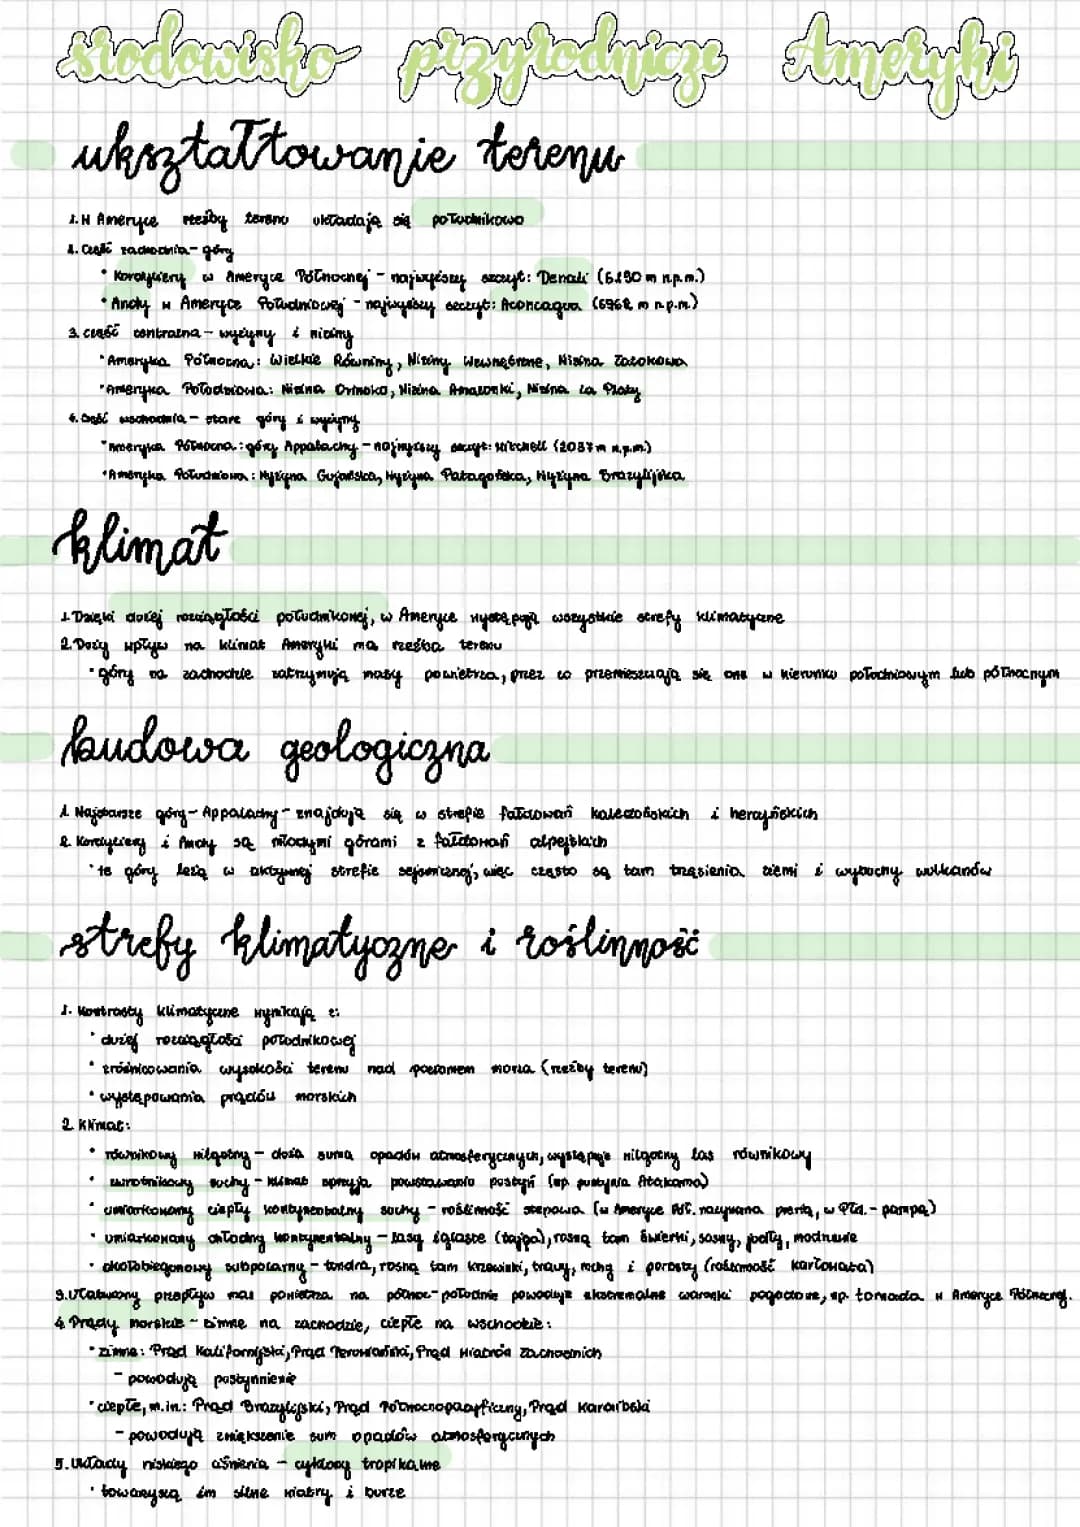 środowisko przyrodnicze Ameryki
ukształtowanie terenu
1. W Ameryce rzeźby terenu układają się południkowo
2. Część zachodnia - góry
• Kordyliery w Ameryce Północnej - najwyższy szczyt: Denali (6190 m n.p.m.)
• Andy w Ameryce Południowej - najwyższy szczyt: Aconcagua (6962 m n.p.m.)
3. część centralna - wyżyny i niziny
• Ameryka Północna: Wielkie Równiny, Niziny Wewnętrzne, Nizina Zatokowa
• Ameryka Południowa: Nizina Orinoko, Nizina Amazonki, Nizina La Platy
4. Część wschodnia - stare góry i wyżyny
• Ameryka Północna: góry Appalachy - najwyższy szczyt: Mitchell (2037 m n.p.m.)
• Ameryka Południowa: Wyżyna Gujańska, Wyżyna Patagońska, Wyżyna Brazylijska
klimat
1. Dzięki dużej rozciągłości południkowej, w Ameryce występują wszystkie strefy klimatyczne
2. Duży wpływ na klimat Ameryki ma rzeźba terenu
• góry na zachodzie zatrzymują masy powietrza, przez co przemieszczają się one w kierunku południowym lub północnym
budowa geologiczna
1. Najstarsze góry - Appalachy - znajdują się w strefie fałdowań kaledońskich i hercyńskich
2. Kordyliery i Andy są młodymi górami z fałdowań alpejskich
• te góry leżą w aktywnej strefie sejsmicznej, więc często są tam trzęsienia ziemi i wybuchy wulkanów
strefy klimatyczne i roślinność
1. Kontrasty klimatyczne wynikają z:
• dużej rozciągłości południkowej
• zróżnicowania wysokości terenu nad poziomem morza (rzeźby terenu)
• występowania prądów morskich
2. Klimat:
• równikowy wilgotny - duża suma opadów atmosferycznych, występuje wilgotny las równikowy
• zwrotnikowy suchy - klimat sprzyja powstawaniu pustyń (np. pustynia Atakama)
• umiarkowany ciepły kontynentalny suchy - roślinność stepowa (w Ameryce Płn. nazywana prerią, w Płd. - pampą)
• umiarkowany chłodny kontynentalny - lasy iglaste (tajga), rosną tam świerki, sosny, jodły, modrzewie
• okołobiegunowy subpolarny - tundra, rosną tam krzewinki, trawy, mchy i porosty (roślinność karłowata)
3. Ułatwiony przepływ mas powietrza na północ-południe powoduje ekstremalne warunki pogodowe, np. tornada w Ameryce Północnej.
4. Prądy morskie - zimne na zachodzie, ciepłe na wschodzie:
• zimne: Prąd Kalifornijski, Prąd Peruwiański, Prąd Wiatrów Zachodnich
- powodują pustynnienie
• ciepłe, m.in.: Prąd Brazylijski, Prąd Północnopacyficzny, Prąd Karaibski
- powodują zwiększenie sum opadów atmosferycznych
5. Układy niskiego ciśnienia - cyklony tropikalne
• towarzyszą im silne wiatry i burze